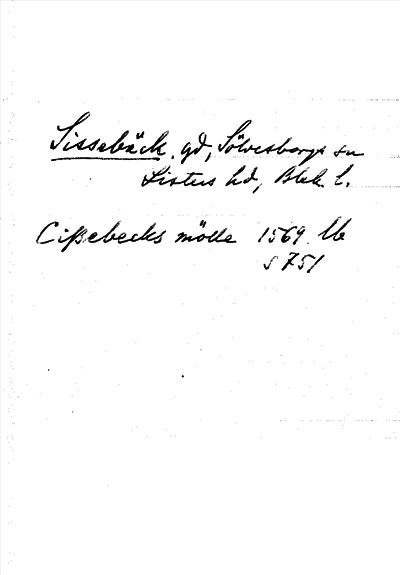 Sissebäck. gd, Sölvesborgs sn
Listers hd, Blek. l.
Cißebecks mölle 1569 lb
s 751